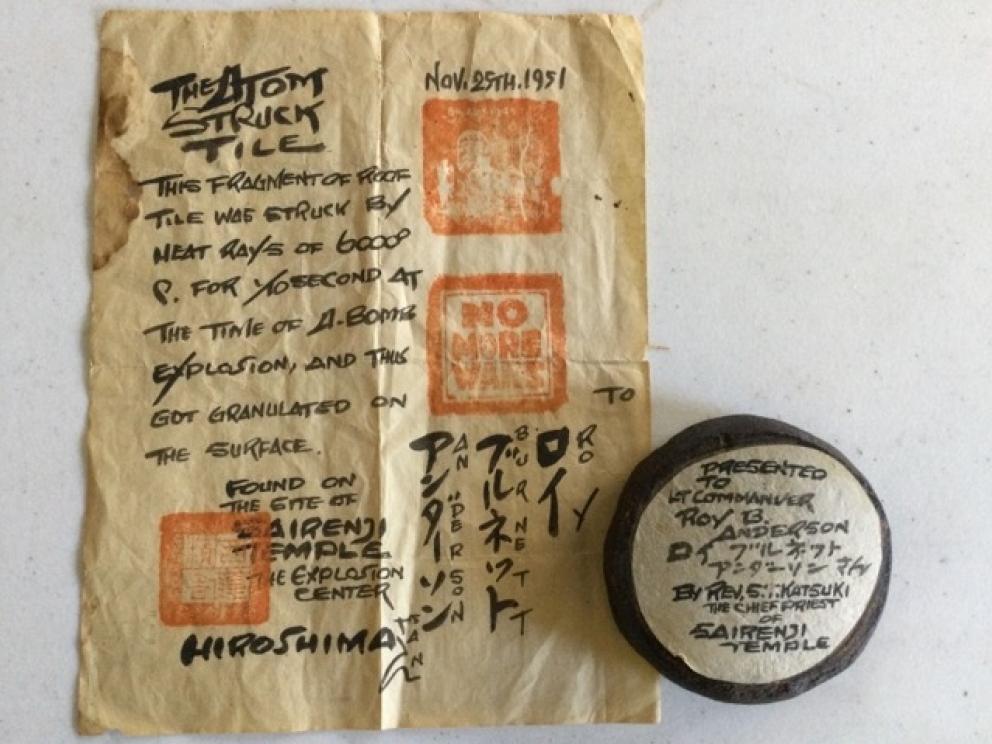 THE ATOM
STRUCK
TILE
THIS FRAGMENT OF ROOF
TILE WAS STRUCK BY
HEAT RAYS OF 6000°
P. FOR 1/10 SECOND AT
THE TIME OF A. BOMB
EXPLOSION, AND THUS
GOT GRANULATED ON
THE SURFACE.
FOUND ON
THE SITE OF
SAIRENJI
TEMPLE
THE EXPLOSION
CENTER
HIROSHIMA
NOV. 25TH. 1951
NO
MORE
WARS
TO
ロイ
ROY
ブルネット
BURNETT
アンダーソン
ANDERSON
さん
SAN
PRESENTED
TO
LT COMMANDER
ROY B.
ANDERSON
ロイ ブルネット
アンダーソン さん
BY REV. S. KATSUKI
THE CHIEF PRIEST
OF
SAIRENJI
TEMPLE